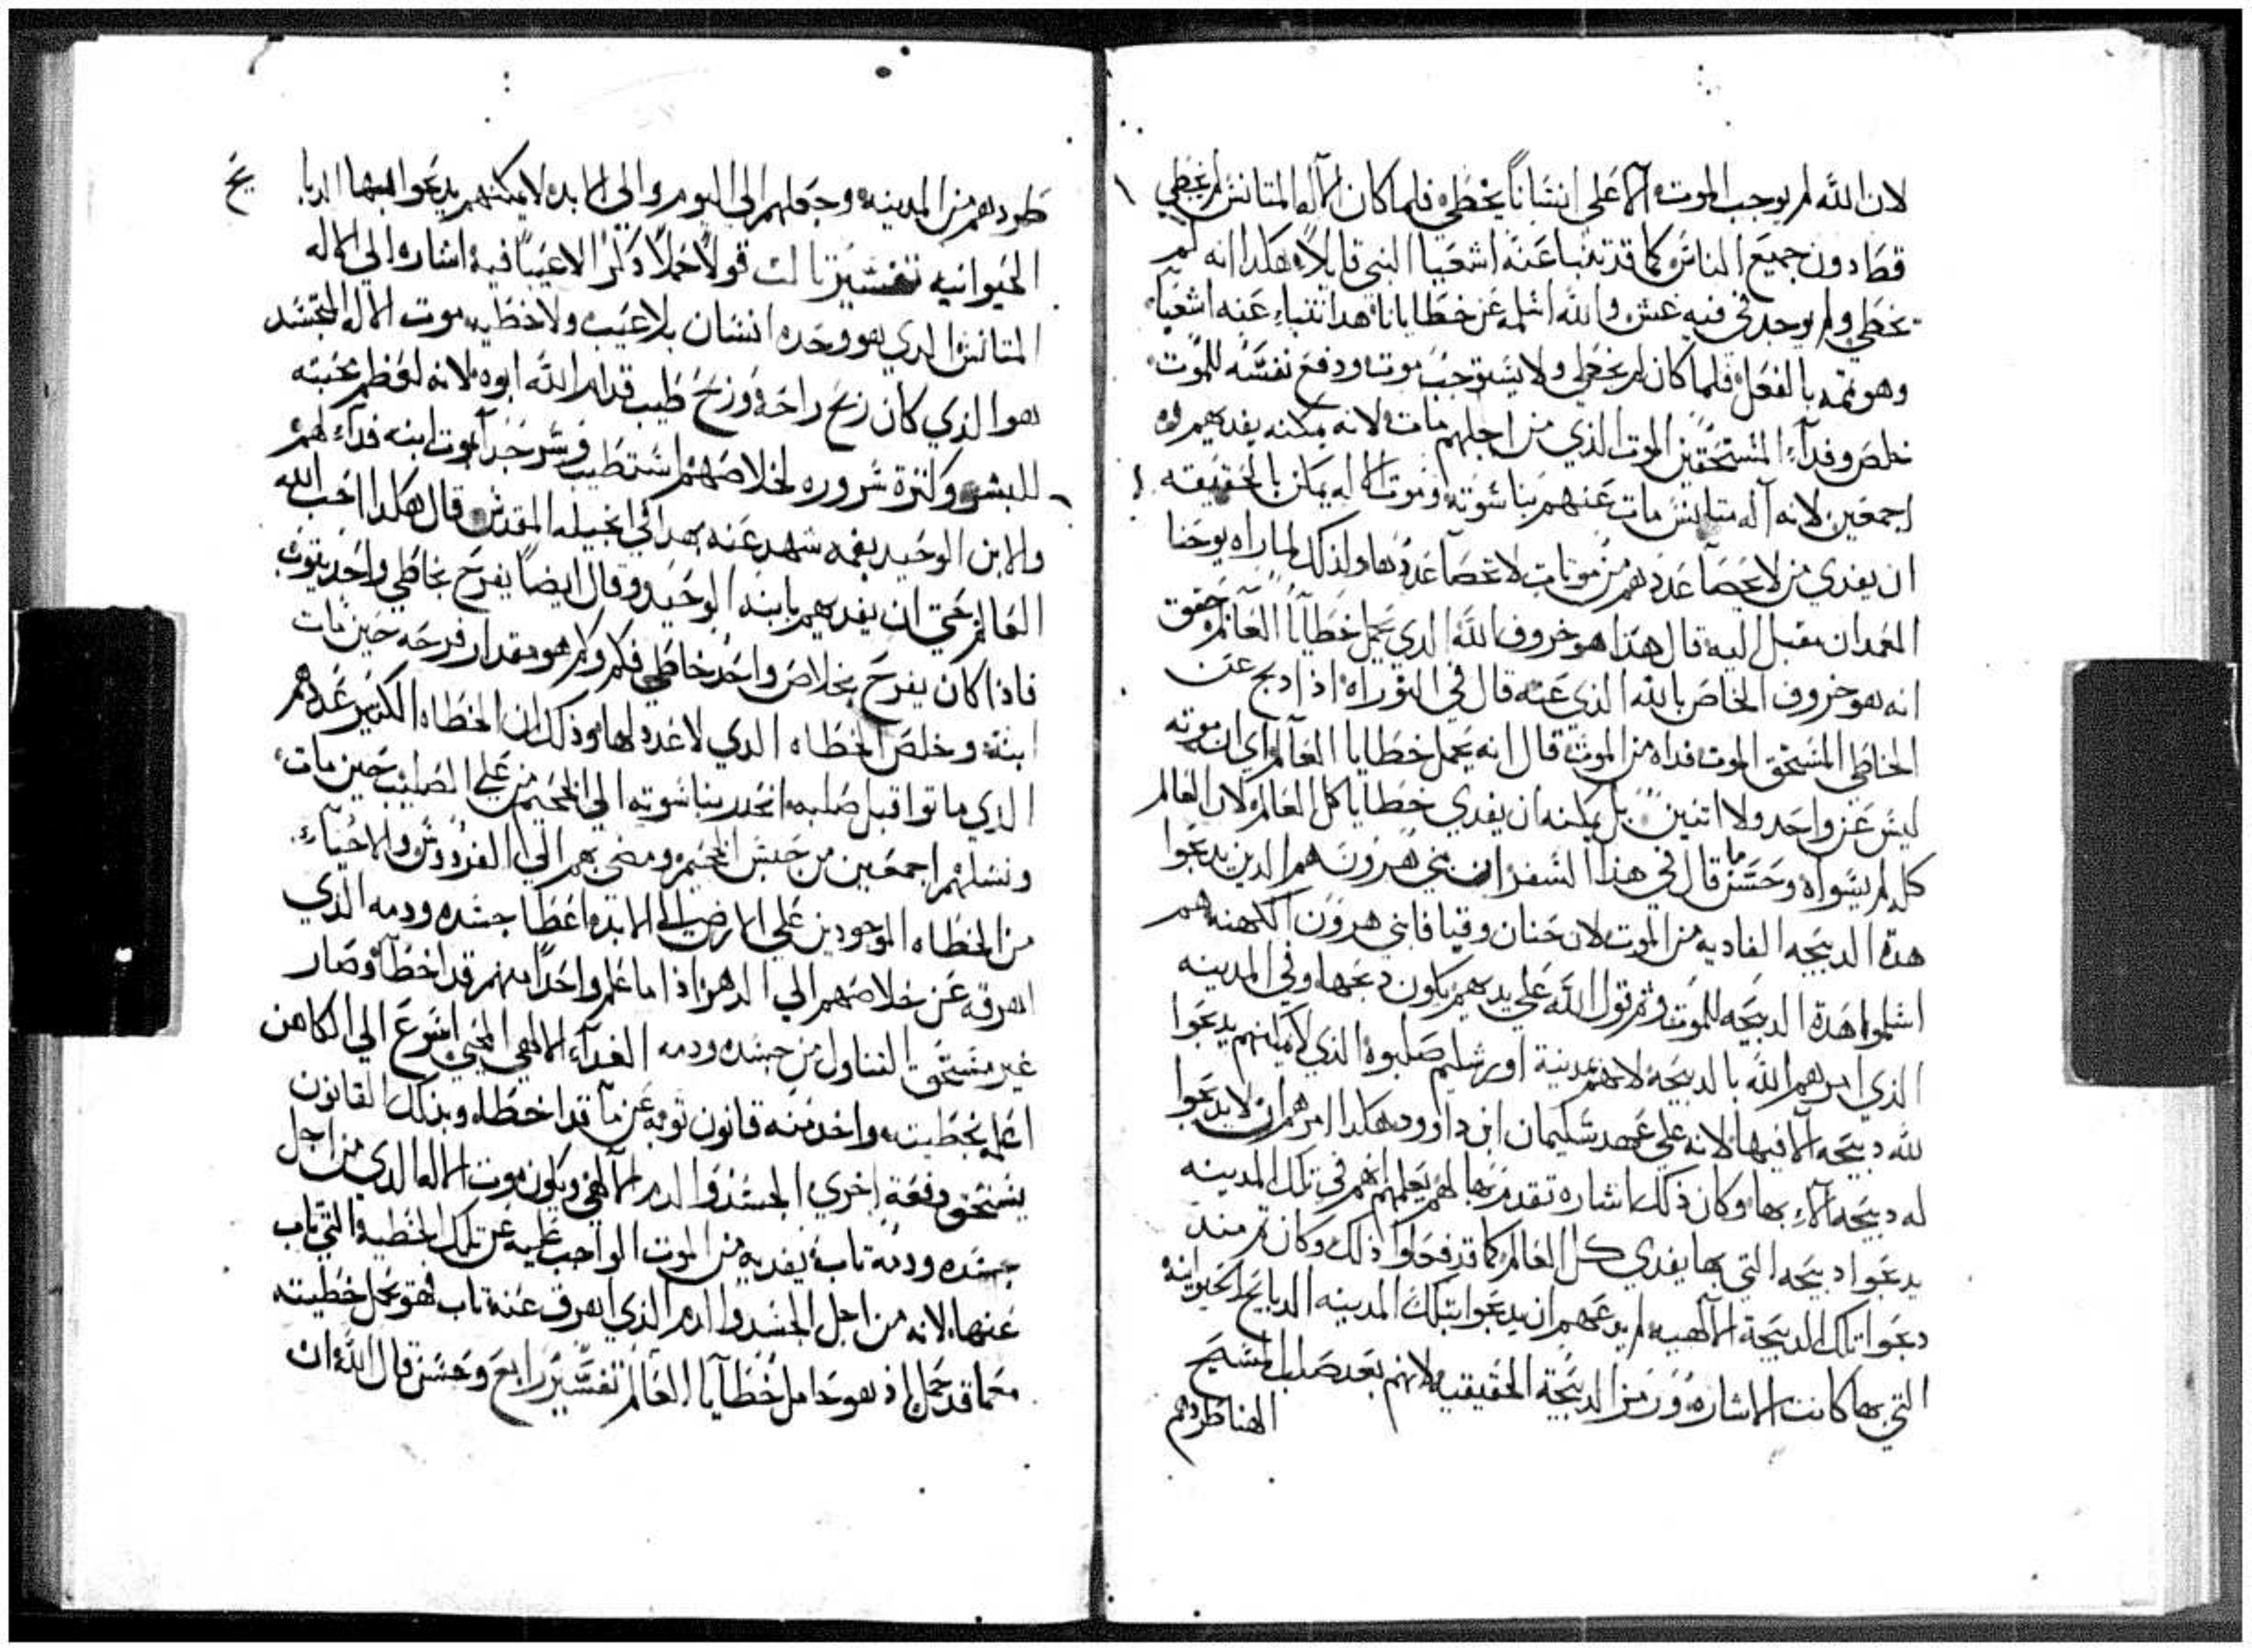 لان الله لم يوجب الموت الا على انسانا يخطي فلما كان الاله المتانس لم يخطي
قط دون جميع الناس كما قد تنبا عنه اشعيا النبي قايلا هكدا انه لم
يخطي ولم يوجد في فيه غش والله اسلمه عن خطايانا هدا تنباء عنه اشعياء
وهو تمه بالفعل فلما كان لم يخطي ولا يستوجب موت ودفع نفسه للموت
خلص وفداء المستحقين الموت الذي من اجلهم مات لانه يمكنه يفديهم
اجمعين لانه آله متانس مات عنهم بناسوته وموت اله يمكن بالحقيقه
ان يفدي من لا يحصا عددهم من موتات لا تحصا عددها ولذلك لما راه يوحنا
المعمدان مقبل اليه قال هدا هو خروف الله الدي يحمل خطايا العالم حقق
انه هو خروف الخاص بالله الذي عنه قال في التوراه اذا دبح عن
الخاطي المستحق الموت فداه من الموت قال انه يحمل خطايا العالم اي ان موته
ليس عن واحد ولا اتنين بل يمكنه ان يفدي خطايا كل العالم لان العالم
كله لم يسواه وحسنا قال في هذا السفر ان بني هرون هم الدين يدبحوا
هدة الدبيحه الفاديه من الموت لان حنان وقيافا بني هرون الكهنه هم
اسلموا هدة الدبيحه للموت وتم قول الله على يديهم يكون دبحها وفي المدينه
الذي امرهم الله بالدبيحة لانهم بمدينة اورشليم صلبوه الذي لا يمكنهم يدبحوا
لله دبيحه الا فيها لانه على عهد سليمان ابن داوود هكدا امرهم ان لا يدبحوا
له دبيحه الاء بها وكان ذلك اشاره تقدم بها لهم يعلمهم انهم في تلك المدينه
يدبحوا دبيحه التي بها يفدي كل العالم كما قد فعلوا ذلك وكان تم مند
دبحوا تلك الدبيحة الالهيه لم يدعهم ان يدبحوا بتلك المدينه الدبايح الحيوانيه
التي بها كانت الاشاره ورمز الدبيحة الحقيقيه لانهم بعد صلب المسيح
الهنا طردهم
طردهم من المدينه وجعلهم الى اليوم والي الابد لا يمكنهم يدبحوا فيها الدبايح
الحيوانيه تفسير تالت قولا حملا ذكرا لا عيبا فيه اشاره الي الاله
المتانس الدي هو وحده انسان بلا عيب ولا خطيه موت الاله المتجسد
هو الذي كان ريح راحة وريح طيب قدام الله ابوه لانه لعظم محبته
للبشر وكترة سروره لخلاصهم استطيب وسر جدا بموت ابنه فداء لهم
والابن الوحيد بفمه شهد عنه بهدا في انجيله المقدس قال هكدا احب الله
العالم حتي ان يفديهم بابنه الوحيد وقال ايضا يفرح بخاطي واحد يتوب
فاذا كان يفرح بخلاص واحد خاطي فكم وكم هو مقدار فرحه حين مات
ابنه وخلص الخطاه الدي لا عدد لها وذلك ان الخطاه الكتير عددهم
الدي ماتوا قبل صلبه انحدر بناسوته الي الجحيم من علي الصليب حين مات
ونشلهم اجمعين من حبس الجحيم ومضي بهم الي الفردوس والاحياء
من الخطاه الموجودين علي الارض الي الابد اعطا جسده ودمه الذي
اهرقه عن خلاصهم الي الدهر اذا ما علم واحدا منهم قد اخطا وصار
غير مستحق التناول من جسده ودمه الغداء الالهي المحيي اسوع الي الكاهن
اعلمه بخطيته واخد منه قانون توبه عن ما قد اخطا وبذلك القانون
يستحق دفعة اخري الجسد والدم الالهي ويكون موت الاله الدي من اجل
جسده ودمه تاب يفديه من الموت الواجب عليه عن تلك الخطيه التي تاب
عنها لانه من اجل الجسد والدم الذي اهرق عنه تاب فهو يحمل خطيته
معما قد حمل اذ هو حامل خطايا العالم تفسير رابع وحسن قال الله ان